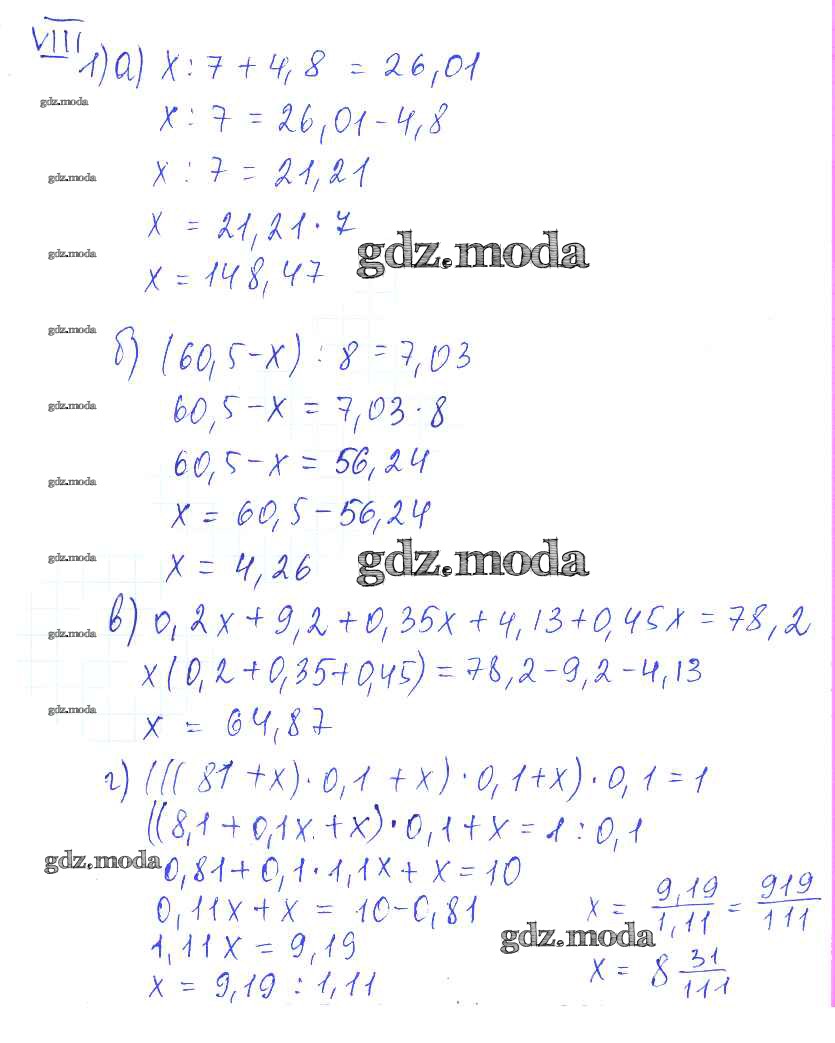 VIII
1) а) x : 7 + 4,8 = 26,01
gdz.moda
x : 7 = 26,01 - 4,8
gdz.moda
x : 7 = 21,21
x = 21,21 · 7
gdz.moda
gdz.moda
x = 148,47
gdz.moda
б) (60,5 - x) : 8 = 7,03
gdz.moda
60,5 - x = 7,03 · 8
60,5 - x = 56,24
gdz.moda
x = 60,5 - 56,24
gdz.moda
gdz.moda
x = 4,26
в) 0,2x + 9,2 + 0,35x + 4,13 + 0,45x = 78,2
gdz.moda
x(0,2 + 0,35 + 0,45) = 78,2 - 9,2 - 4,13
gdz.moda
x = 64,87
г) (((81 + x) · 0,1 + x) · 0,1 + x) · 0,1 = 1
((8,1 + 0,1x + x) · 0,1 + x = 1 : 0,1
gdz.moda
0,81 + 0,1 · 1,1x + x = 10
0,11x + x = 10 - 0,81
1,11x = 9,19
x = 9,19 : 1,11
x = 9,19/1,11 = 919/111
gdz.moda
x = 8 31/111